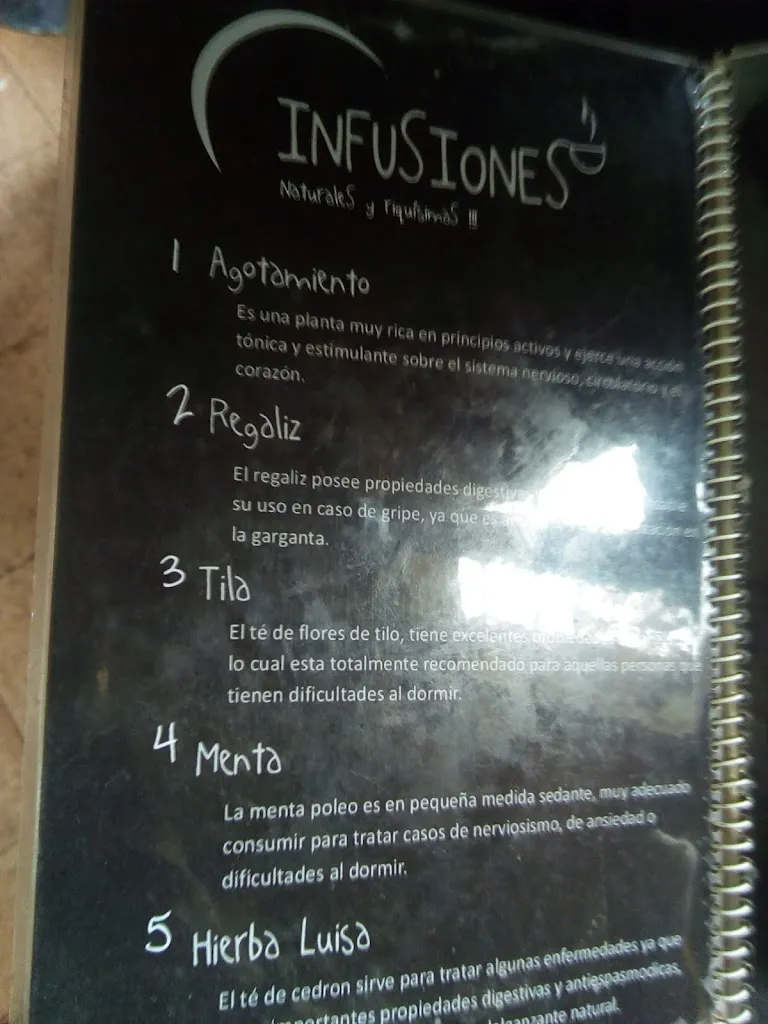 INFUSIONES
Naturales y riquísimas !!!
1 Agotamiento
Es una planta muy rica en principios activos y ejerce una acción
tónica y estimulante sobre el sistema nervioso, circulatorio y el
corazón.
2 Regaliz
El regaliz posee propiedades
su uso en caso de gripe, ya que es
la garganta.
3 Tila
El té de flores de tilo, tiene excelentes
lo cual esta totalmente recomendado para aquellas personas que
tienen dificultades al dormir.
4 Menta
La menta poleo es en pequeña medida sedante, muy adecuado
consumir para tratar casos de nerviosismo, de ansiedad o
dificultades al dormir.
5 Hierba Luisa
El té de cedron sirve para tratar algunas enfermedades ya que
importantes propiedades digestivas y antiespasmodicas,
natural.